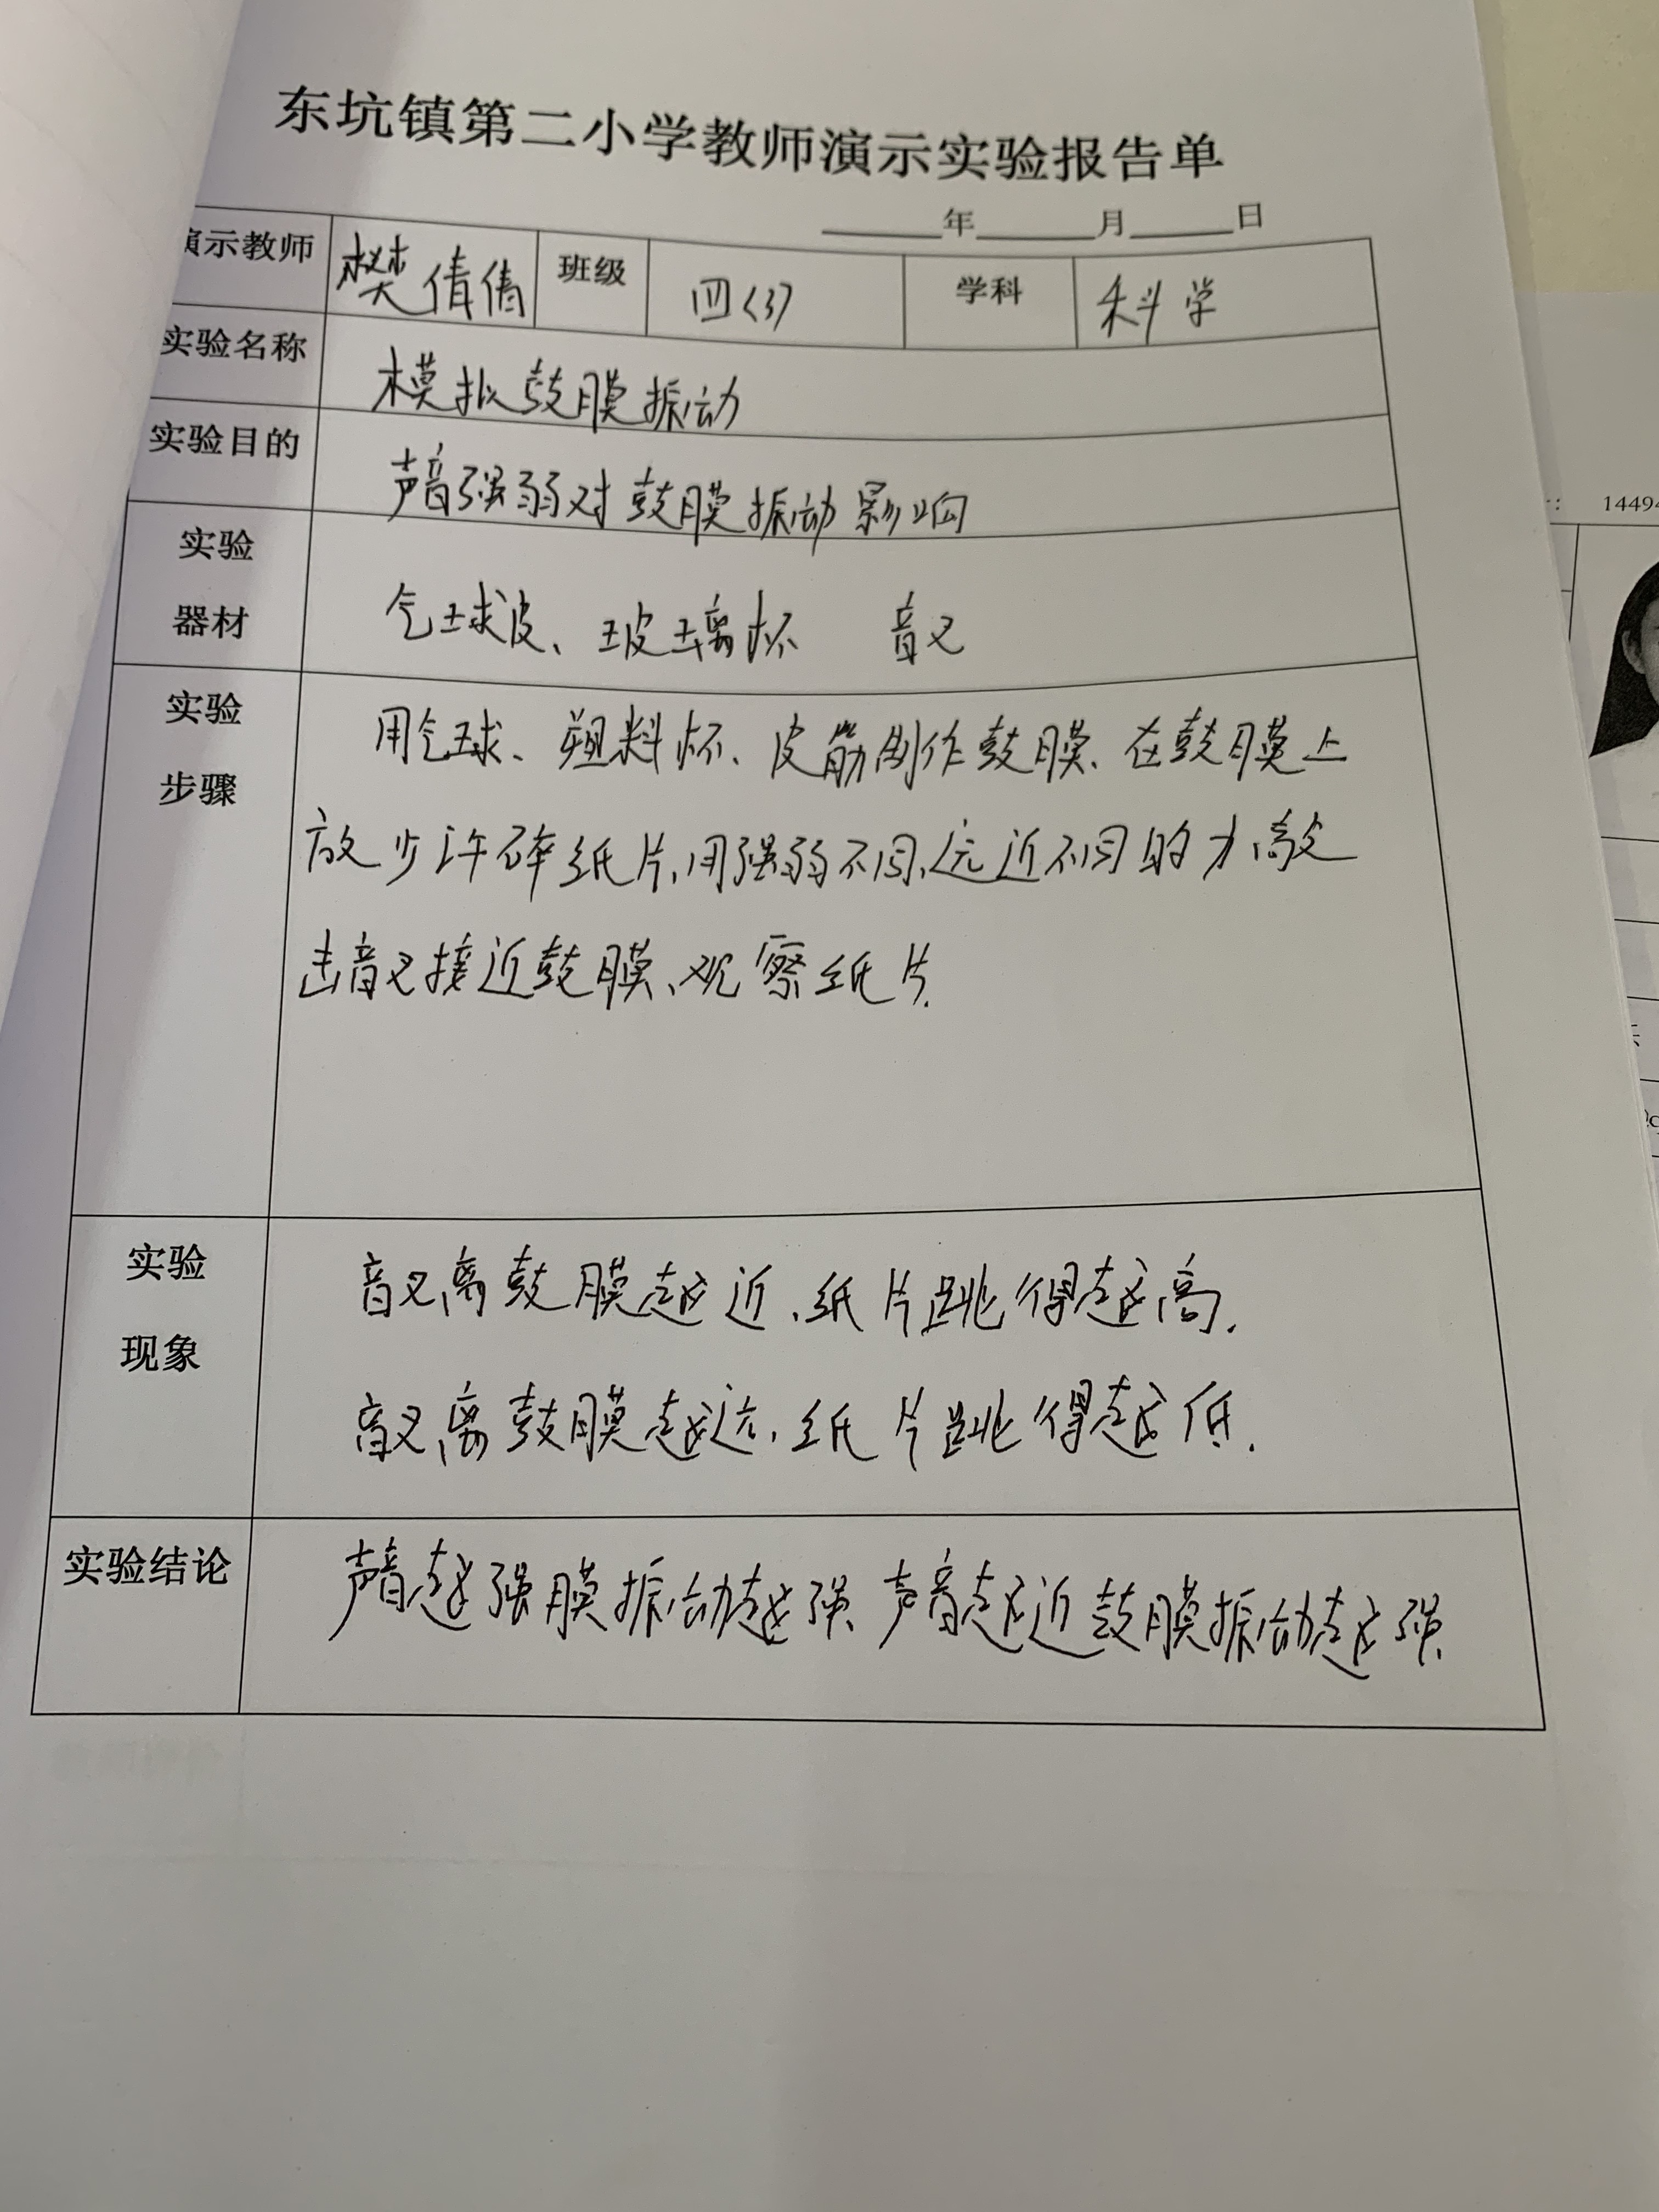 东坑镇第二小学教师演示实验报告单
年 月 日
演示教师 樊倩倩 班级 四〈3〉 学科 科学
实验名称 模拟鼓膜振动
实验目的 声音强弱对鼓膜振动影响
实验
器材
气球皮、玻璃杯 音叉
实验
步骤
用气球、塑料杯、皮筋制作鼓膜、在鼓膜上
放少许碎纸片,用强弱不同,远近不同的力敲
击音叉接近鼓膜、观察纸片.
实验
现象
音叉离鼓膜越近,纸片跳得越高.
音叉离鼓膜越远,纸片跳得越低.
实验结论 声音越强膜振动越强、声音越近鼓膜振动越强.
14494